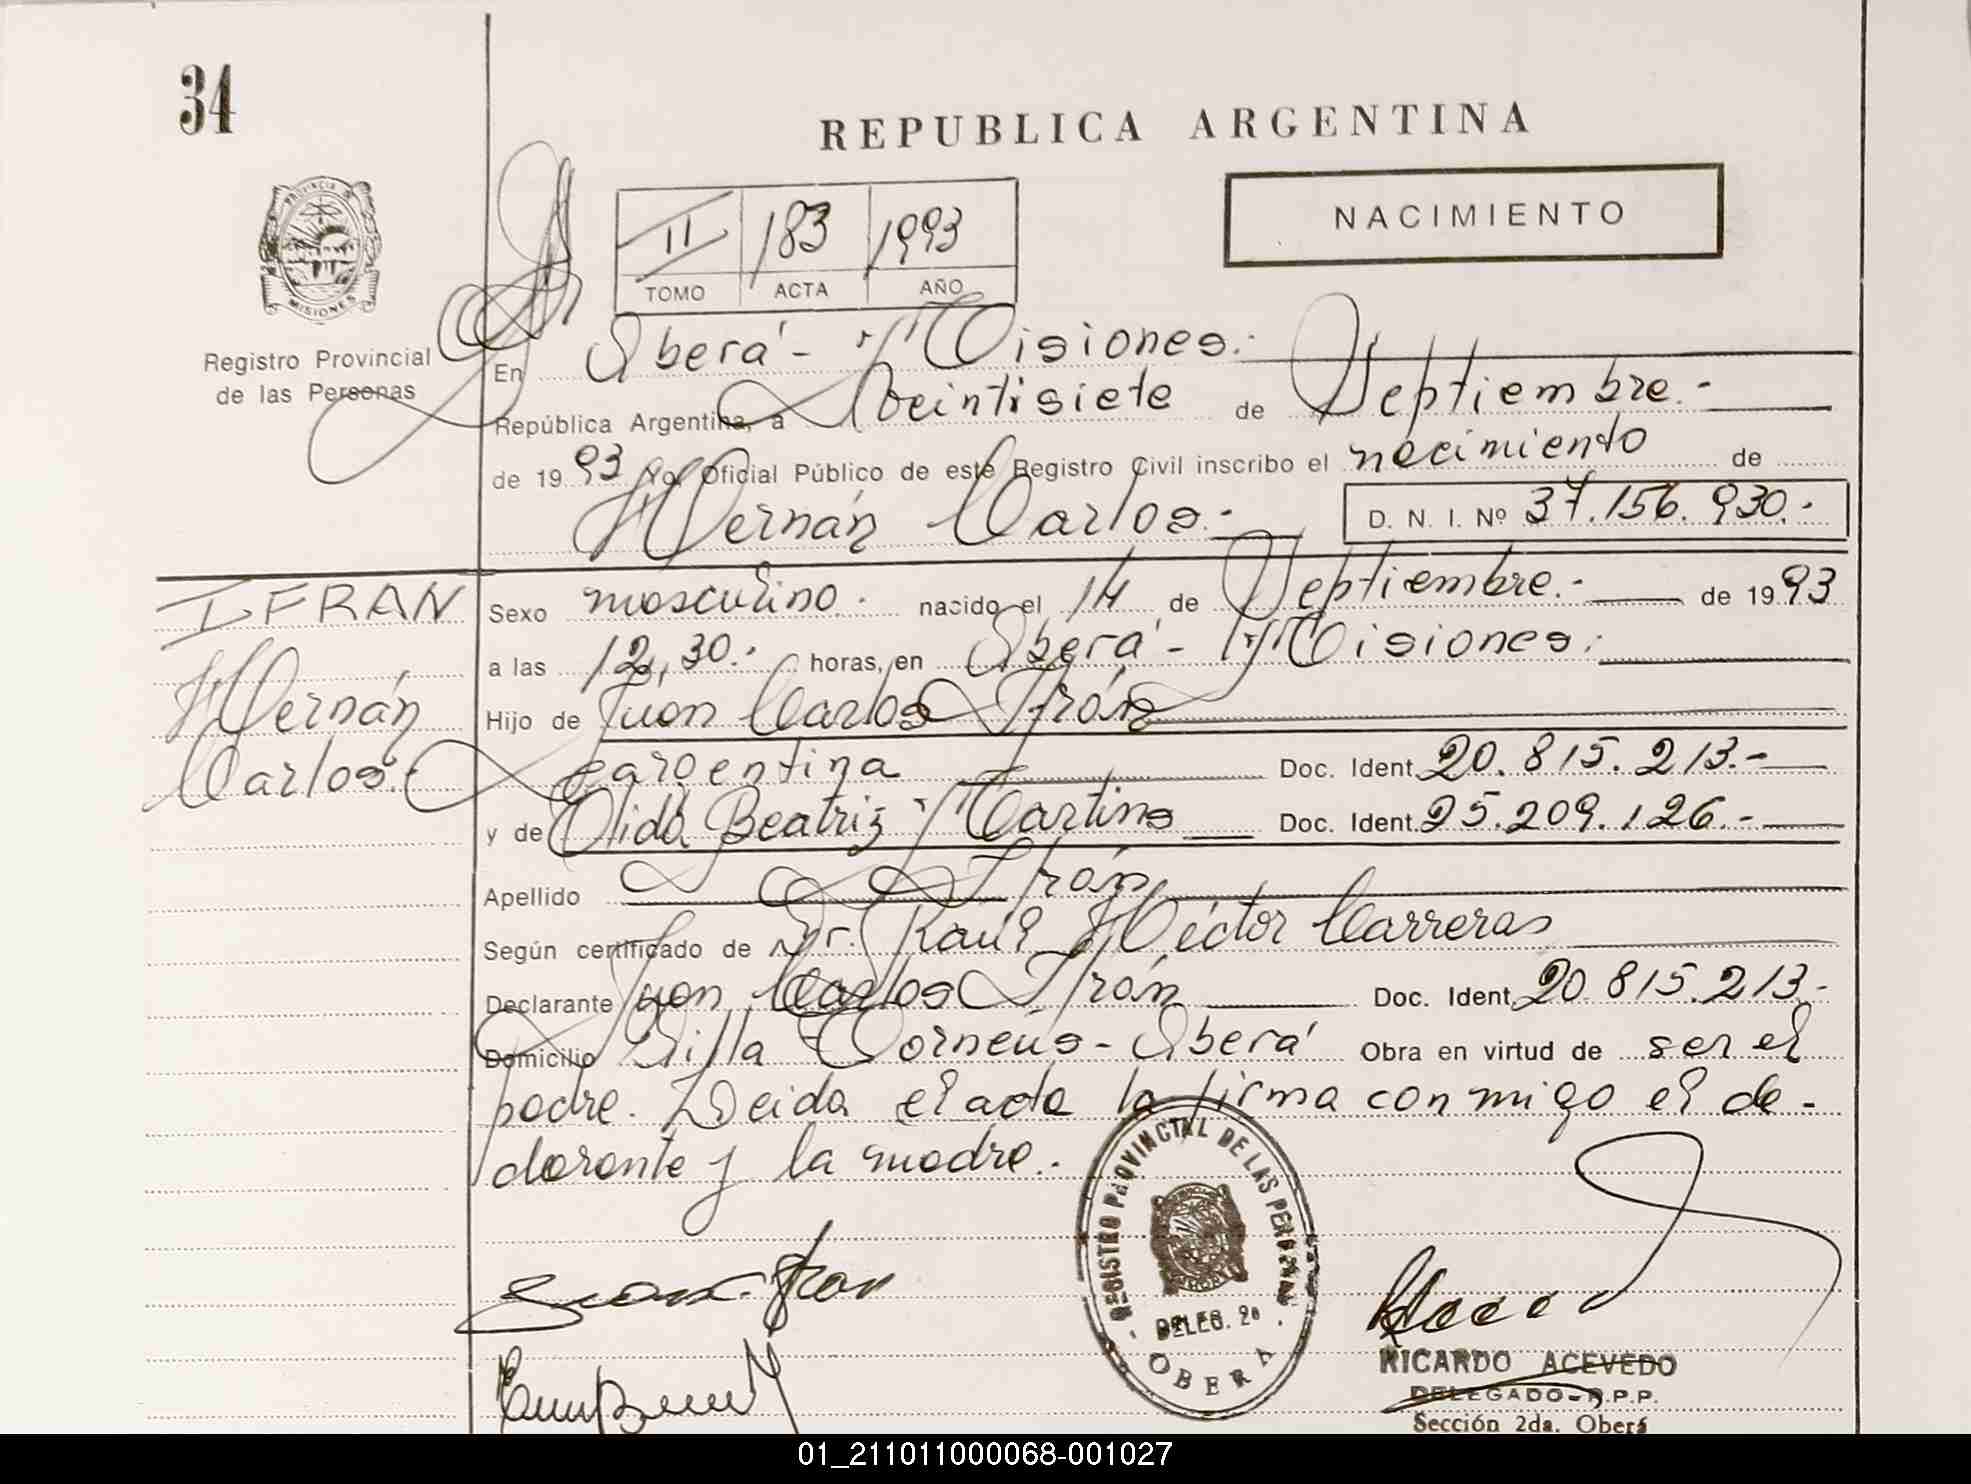 34
REPUBLICA ARGENTINA
NACIMIENTO
II 183 1993
TOMO ACTA AÑO
PROVINCIA DE MISIONES
Registro Provincial
de las Personas
En Oberá - Misiones.-
República Argentina, a Veintisiete de Septiembre.-
de 1993 Yo, Oficial Público de este Registro Civil inscribo el nacimiento de
Hernán Carlos.- D. N. I. Nº 37.156.930.-
IFRAN
Hernán
Carlos.-
Sexo masculino. nacido el 14 de Septiembre.- de 1993
a las 12,30.- horas, en Oberá - Misiones.
Hijo de Juan Carlos Ifrán
argentina Doc. Ident. 20.815.213.-
y de Olida Beatriz Martins Doc. Ident. 25.209.126.-
Apellido Ifrán
Según certificado de Dr. Raúl Héctor Carreras
Declarante Juan Carlos Ifrán Doc. Ident. 20.815.213.-
Domicilio Villa Torneus - Oberá Obra en virtud de ser el
padre. Leida el acta la firma conmigo el de-
clarante y la madre.-
REGISTRO PROVINCIAL DE LAS PERSONAS
DELEG. 2a
OBERA
RICARDO ACEVEDO
DELEGADO - R.P.P.
Sección 2da. Oberá
01_211011000068-001027